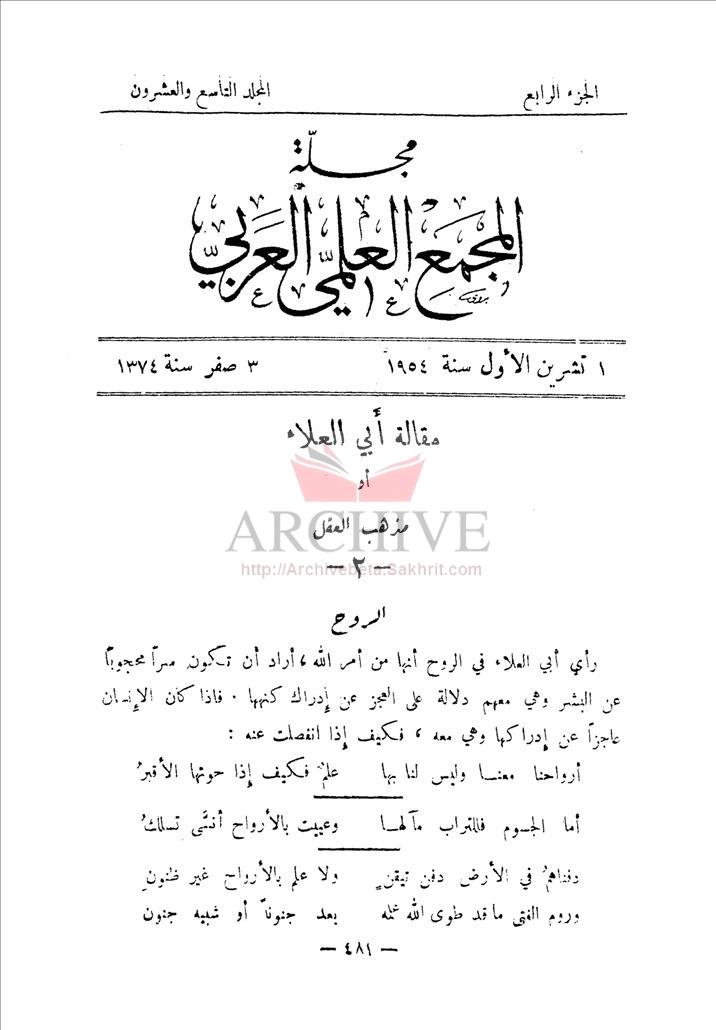 الجزء الرابع المجلد التاسع والعشرون
مجلة
المجمع العلمي العربي
١ تشرين الأول سنة ١٩٥٤ ٣ صفر سنة ١٣٧٤
مقالة أبي العلاء
أو
ARCHIVE
مذهب العقل
– ٢ –
http://Archivebeta.Sakhrit.com
الروح
رأي أبي العلاء في الروح أنها من أمر الله ، أراد أن تكون سراً محجوباً
عن البشر وهي معهم دلالة على العجز عن إدراك كنهها . فاذا كان الإنسان
عاجزاً عن إدراكها وهي معه ، فكيف إذا انفصلت عنه :
أرواحنا معنا وليس لنا بها علمٌ فكيف إذا حوتها الأقبرُ
أما الجسوم فللتراب مآلها وعييت بالأرواح أنَّى تسلكُ
دفناهمُ في الأرض دفن تيقنٍ ولا علم بالأرواح غير ظنونِ
وروم الفتى ما قد طوى الله علمه يعد جنوناً أو شبيه جنون
– ٤٨١ –